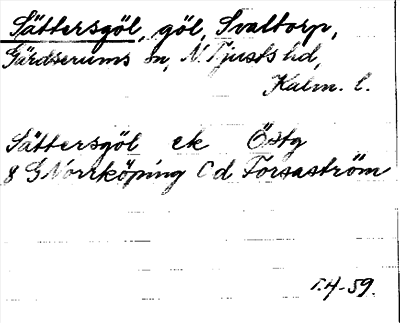 Sättersgöl, göl, Svaltorp,
Gärdserums sn, N. Tjusts hd,
Kalm. l.
Sättersgöl ek Östg
8 G Norrköping Cd Forsaström
T.4-59.